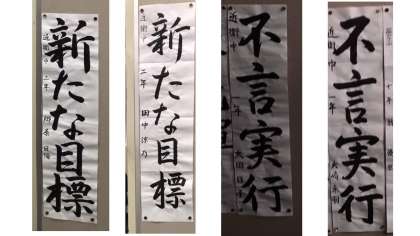 新たな目標
近衛中 二年
新たな目標
近衛中 二年 田中
不言実行
近衛中 一年
不言実行
近衛中 一年